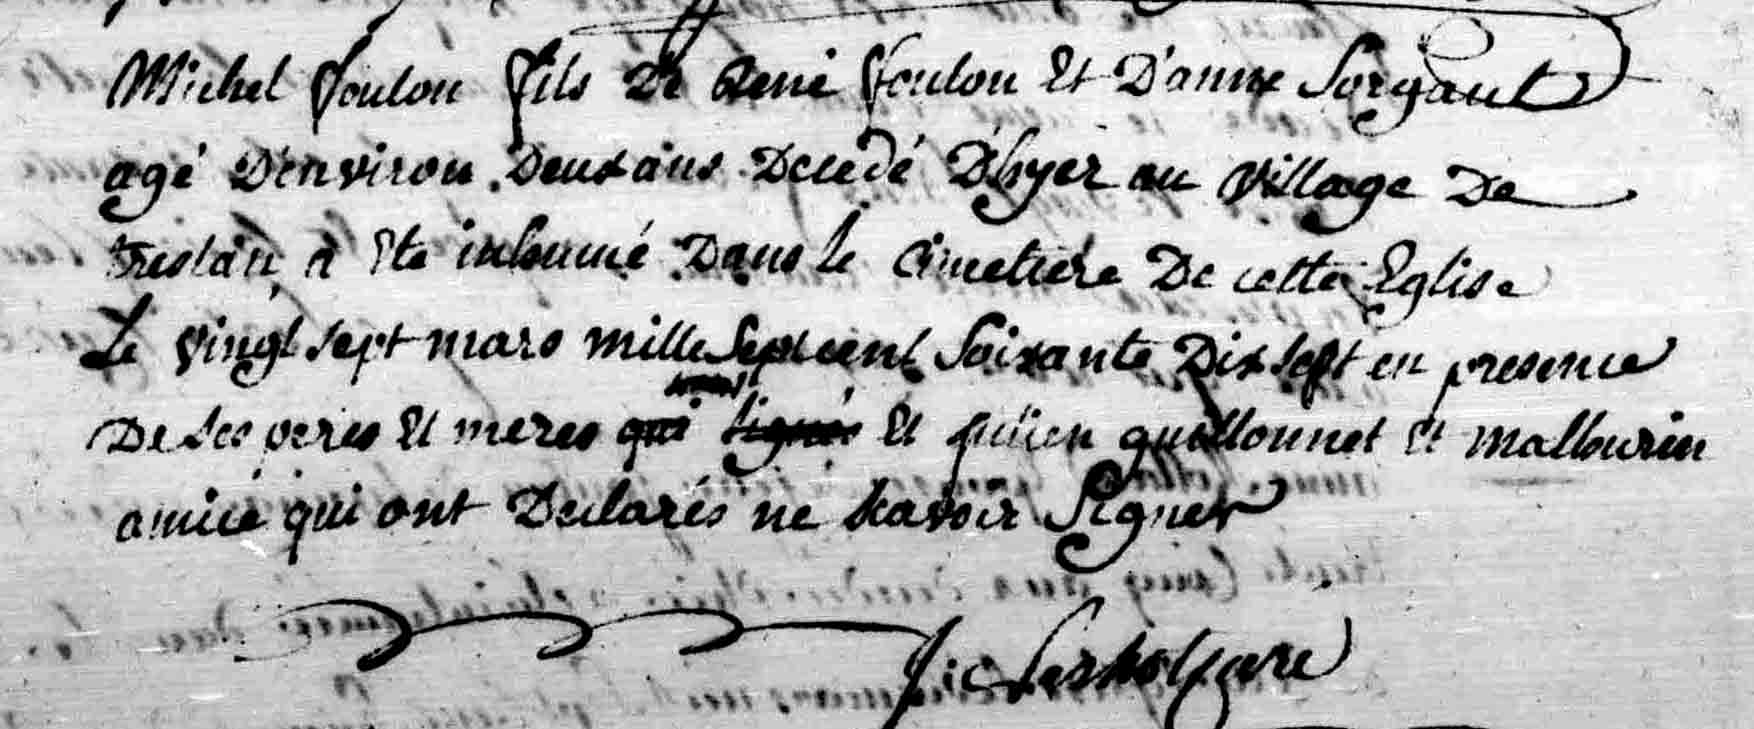 Michel foulon fils De René foulon Et D'anne Sorgant
agé D'environ Deux ans Decedé D'hyer au village De
a Eté inhumé Dans le cimetiere De cette Eglise
Le vingt sept mars mille Sept cent Soixante Dix sept en presence
De ses peres Et meres qui signés Et julien guillonnet Et mathurin
qui ont Declarés ne scavoir Signer